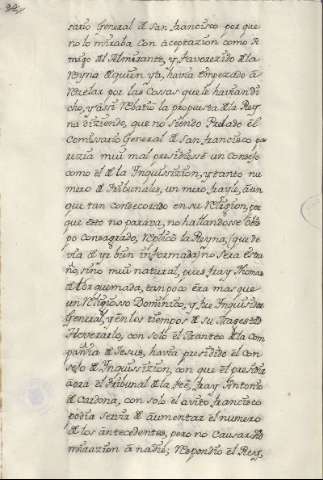 sario General de San Francisco por que
no lo miraba con aceptazion como A
migo del Almirante, y favorezido de la
Reyna de quien ya, havia empezado à
Rezelar por las Cossas que le havian di
cho, y assi Rebatio la propuesta de la Rey
na diziendo, que no siendo Prelado el
Comissario General de San Francisco pa
rezia mui mal presidiesse un consejo
como el de la Inquissizion, y tanto nu
mero de tribunales, un mero frayle, aun
que tan condecorado en su Religion, por
que esto no parava, no hallandosse obis
po consagrado, Replicò la Reyna, que de
via de yr bien informada no sera estra
ño, sino mui natural, pues fray Thomas
de torquemada, tanpoco era mas que
un Religiosso Dominico, y fue Inquisidor
General, y en los tiempos de su Magestad
Niverardo, con solo el Manteo de la Com
pañia de Jesus, havia presidido el Con
sejo de Inquissizion, con que el presidir
aora el tribunal de la feè, fray Antonio
de Cardona, con solo el avito françisco
podia servir de aumentar el numero
de los antecedentes, pero no Causar Ad
mirazion à nadie; Respondio el Rey,